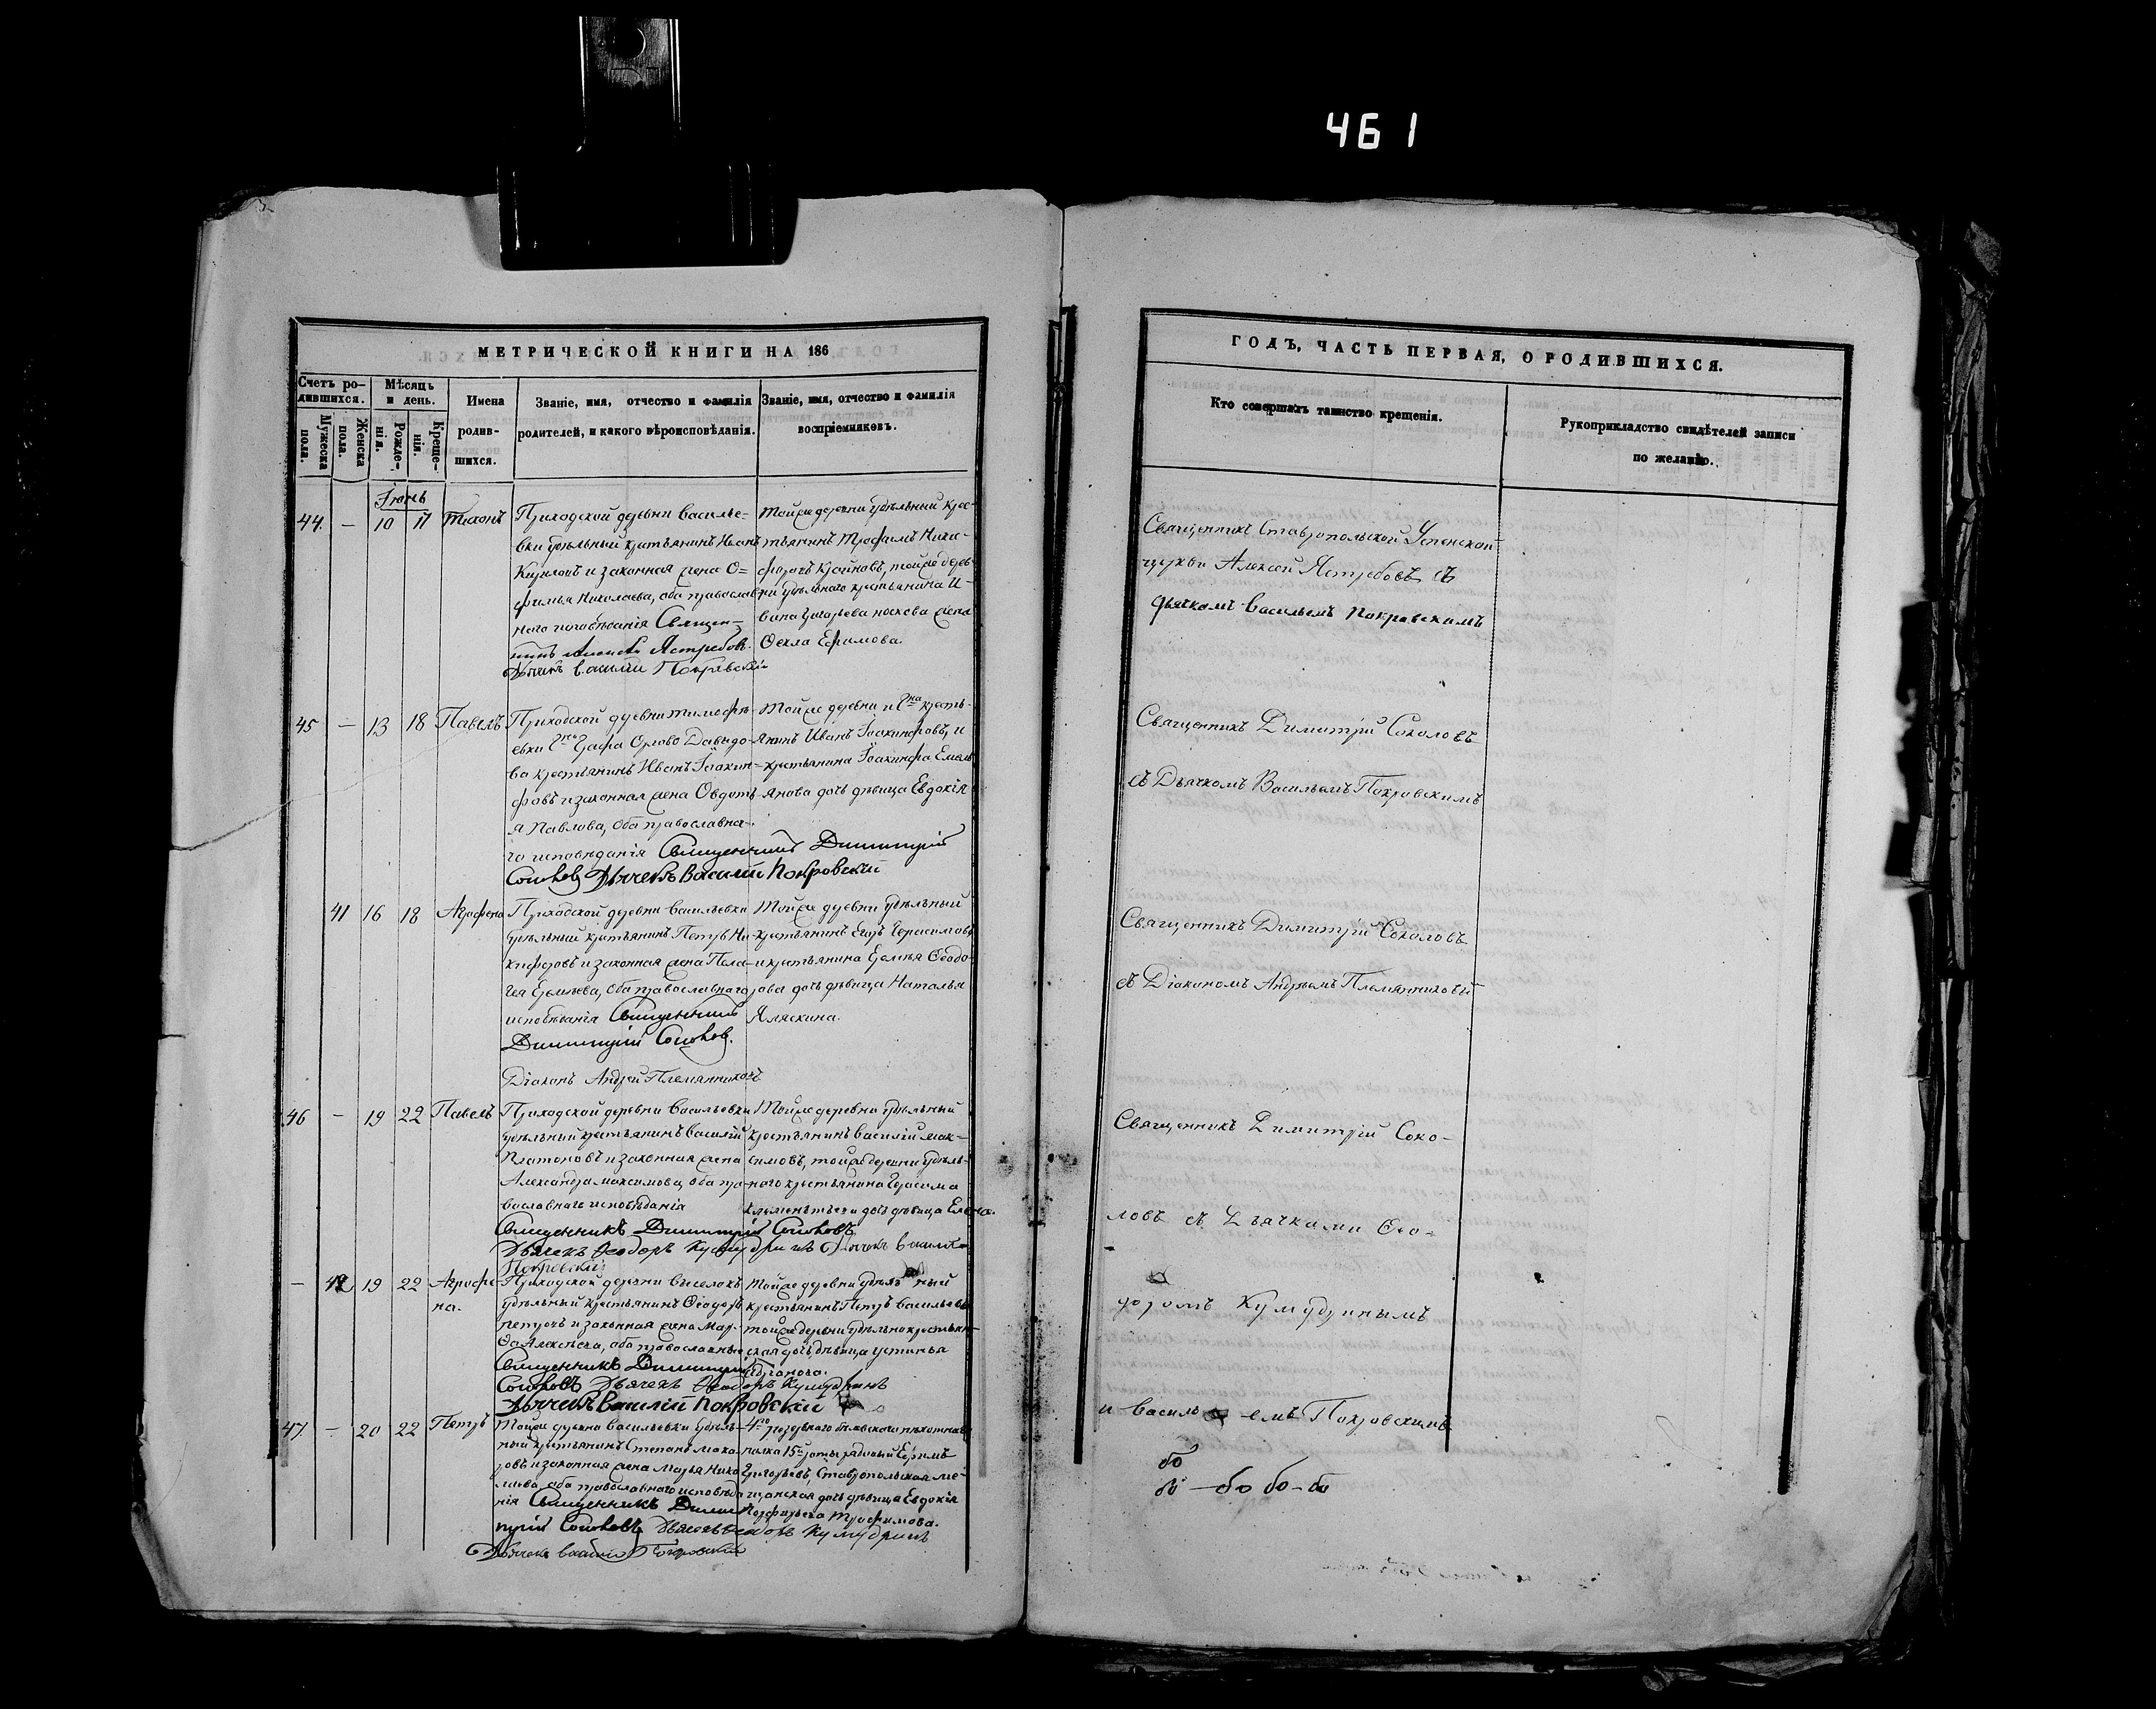 461
МЕТРИЧЕСКОЙ КНИГИ НА 186
Счетъ ро-
дившихся.
Мужеска пола.
Женска пола.
Мѣсяцъ
и день.
Рожде-
нія.
Креще-
нія.
Имена
родив-
шихся.
Званіе, имя, отчество и фамилія
родителей, и какого вѣроисповѣданія.
Званіе, имя, отчество и фамилія
воспріемниковъ.
Іюнь
44. — 10 11 Тихонъ
Приходской деревни Василье-
вки удѣльный крестьянинъ Иванъ
и законная жена О=
фимья Николаева, оба православ
наго исповѣданія Священ-
никъ Алексѣй Ястребовъ.
Дьячекъ Василій Покровскій
Тойже деревни удѣльный крес-
тьянинъ Трофимъ Ники-
форовъ тойже дерев
ни удѣльнаго крестьянина И-
вана Григорьева жена
Ѳекла Ефимова.
45 — 13 18 Павелъ
Приходской деревни Тимофѣ-
евки Графа Орлово Давыдо-
ва крестьянинъ Иванъ Іоакин-
фовъ и законная жена Овдоть
я Павлова, оба православна-
го исповѣданія Священникъ Димитрій
Соколовъ Дьячекъ Василій Покровскій
Тойже деревни и крестъ-
янинъ Иванъ Іоакинфовъ, и
крестьянина Іоакинфа Емель
янова дочь дѣвица Евдокія
41 16 18 Агрофена
Приходской деревни Васильевки
удѣльный крестьянинъ Петръ Ни-
кифоровъ и законная жена Пела-
гея Ермолаева, оба православнаго
исповѣданія Священникъ
Димитрій Соколовъ.
Діаконъ Андрей Племянниковъ
Тойже деревни удѣльный
крестьянинъ Егоръ Герасимовъ
и крестьянина Ѳедо-
рова дочь дѣвица Наталья
46 — 19 22 Павелъ
Приходской деревни Васильевки
удѣльный крестьянинъ Василій
Платоновъ и законная жена
Александра Максимова, оба пра-
вославнаго исповѣданія
Священникъ Димитрій Соколовъ
Дьячекъ Ѳеодоръ Кумудринъ Дьячекъ Василій
Покровскій
Тойже деревни удѣльный
крестьянинъ Василій Мак-
симовъ, тойже деревни удѣль-
наго крестьянина Герасима
Клементьева дочь дѣвица Елена.
— 42 19 22 Агрофе-
на.
Приходской деревни Выселокъ
удѣльный крестьянинъ Ѳеодоръ
Петровъ и законная жена Мар-
ѳа Алексѣева, оба православные
Священникъ Димитрій
Соколовъ Дьячекъ Ѳеодоръ Кумудринъ
Дьячекъ Василій Покровскій
Тойже деревни удѣльный
крестьянинъ Петръ Васильевъ
тойже деревни
дочь дѣвица Устинья
47. — 20 22 Петръ
Тойже деревни Васильевки удѣль-
ный крестьянинъ Степанъ Мака-
ровъ и законная жена Марья Нико
лаева, оба православнаго исповѣда
нія Священникъ Дими
трій Соколовъ Дьячекъ Ѳеодоръ Кумудринъ
Дьячекъ Василій Покровскій
4го резервнаго
полка 15й роты рядовый Ефимъ
Григорьевъ, Ставропольская ме-
щанская дочь дѣвица Евдокія
Трофимова.
ГОДЪ, ЧАСТЬ ПЕРВАЯ, О РОДИВШИХСЯ.
Кто совершалъ таинство крещенія.
Рукоприкладство свидѣтелей записи
по желанію.
Священникъ Ставропольской Успенской
церкви Алексѣй Ястребовъ съ
дьячкомъ Васильемъ Покровскимъ
Священникъ Димитрій Соколовъ
съ Дьячкомъ Васильемъ Покровскимъ
Священникъ Димитрій Соколовъ
съ Діакономъ Андреемъ Племянниковы
Священникъ Димитрій Соко-
ловъ съ Дьячками Ѳео-
доромъ Кумудринымъ
и Василь емъ Покровскимъ